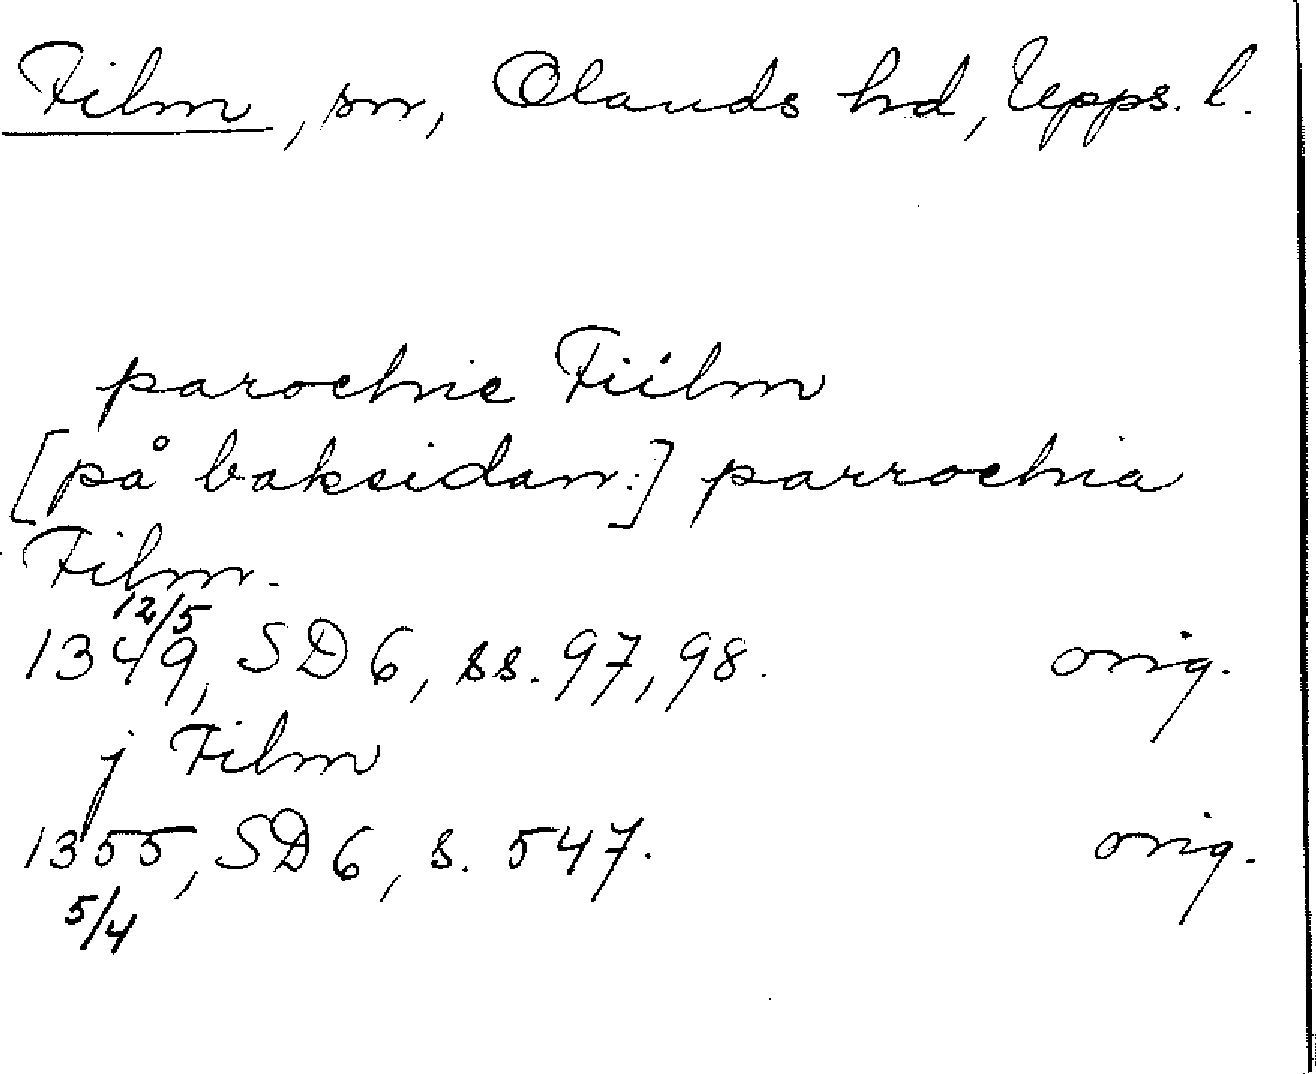 Film, sn, Olands hd, Upps. l.
parochie Fiilm
[på baksidan:] parrochia
Film.
12/5
1349, SD 6, ss. 97, 98. orig.
j Film
1355, SD 6, s. 547. orig.
5/4